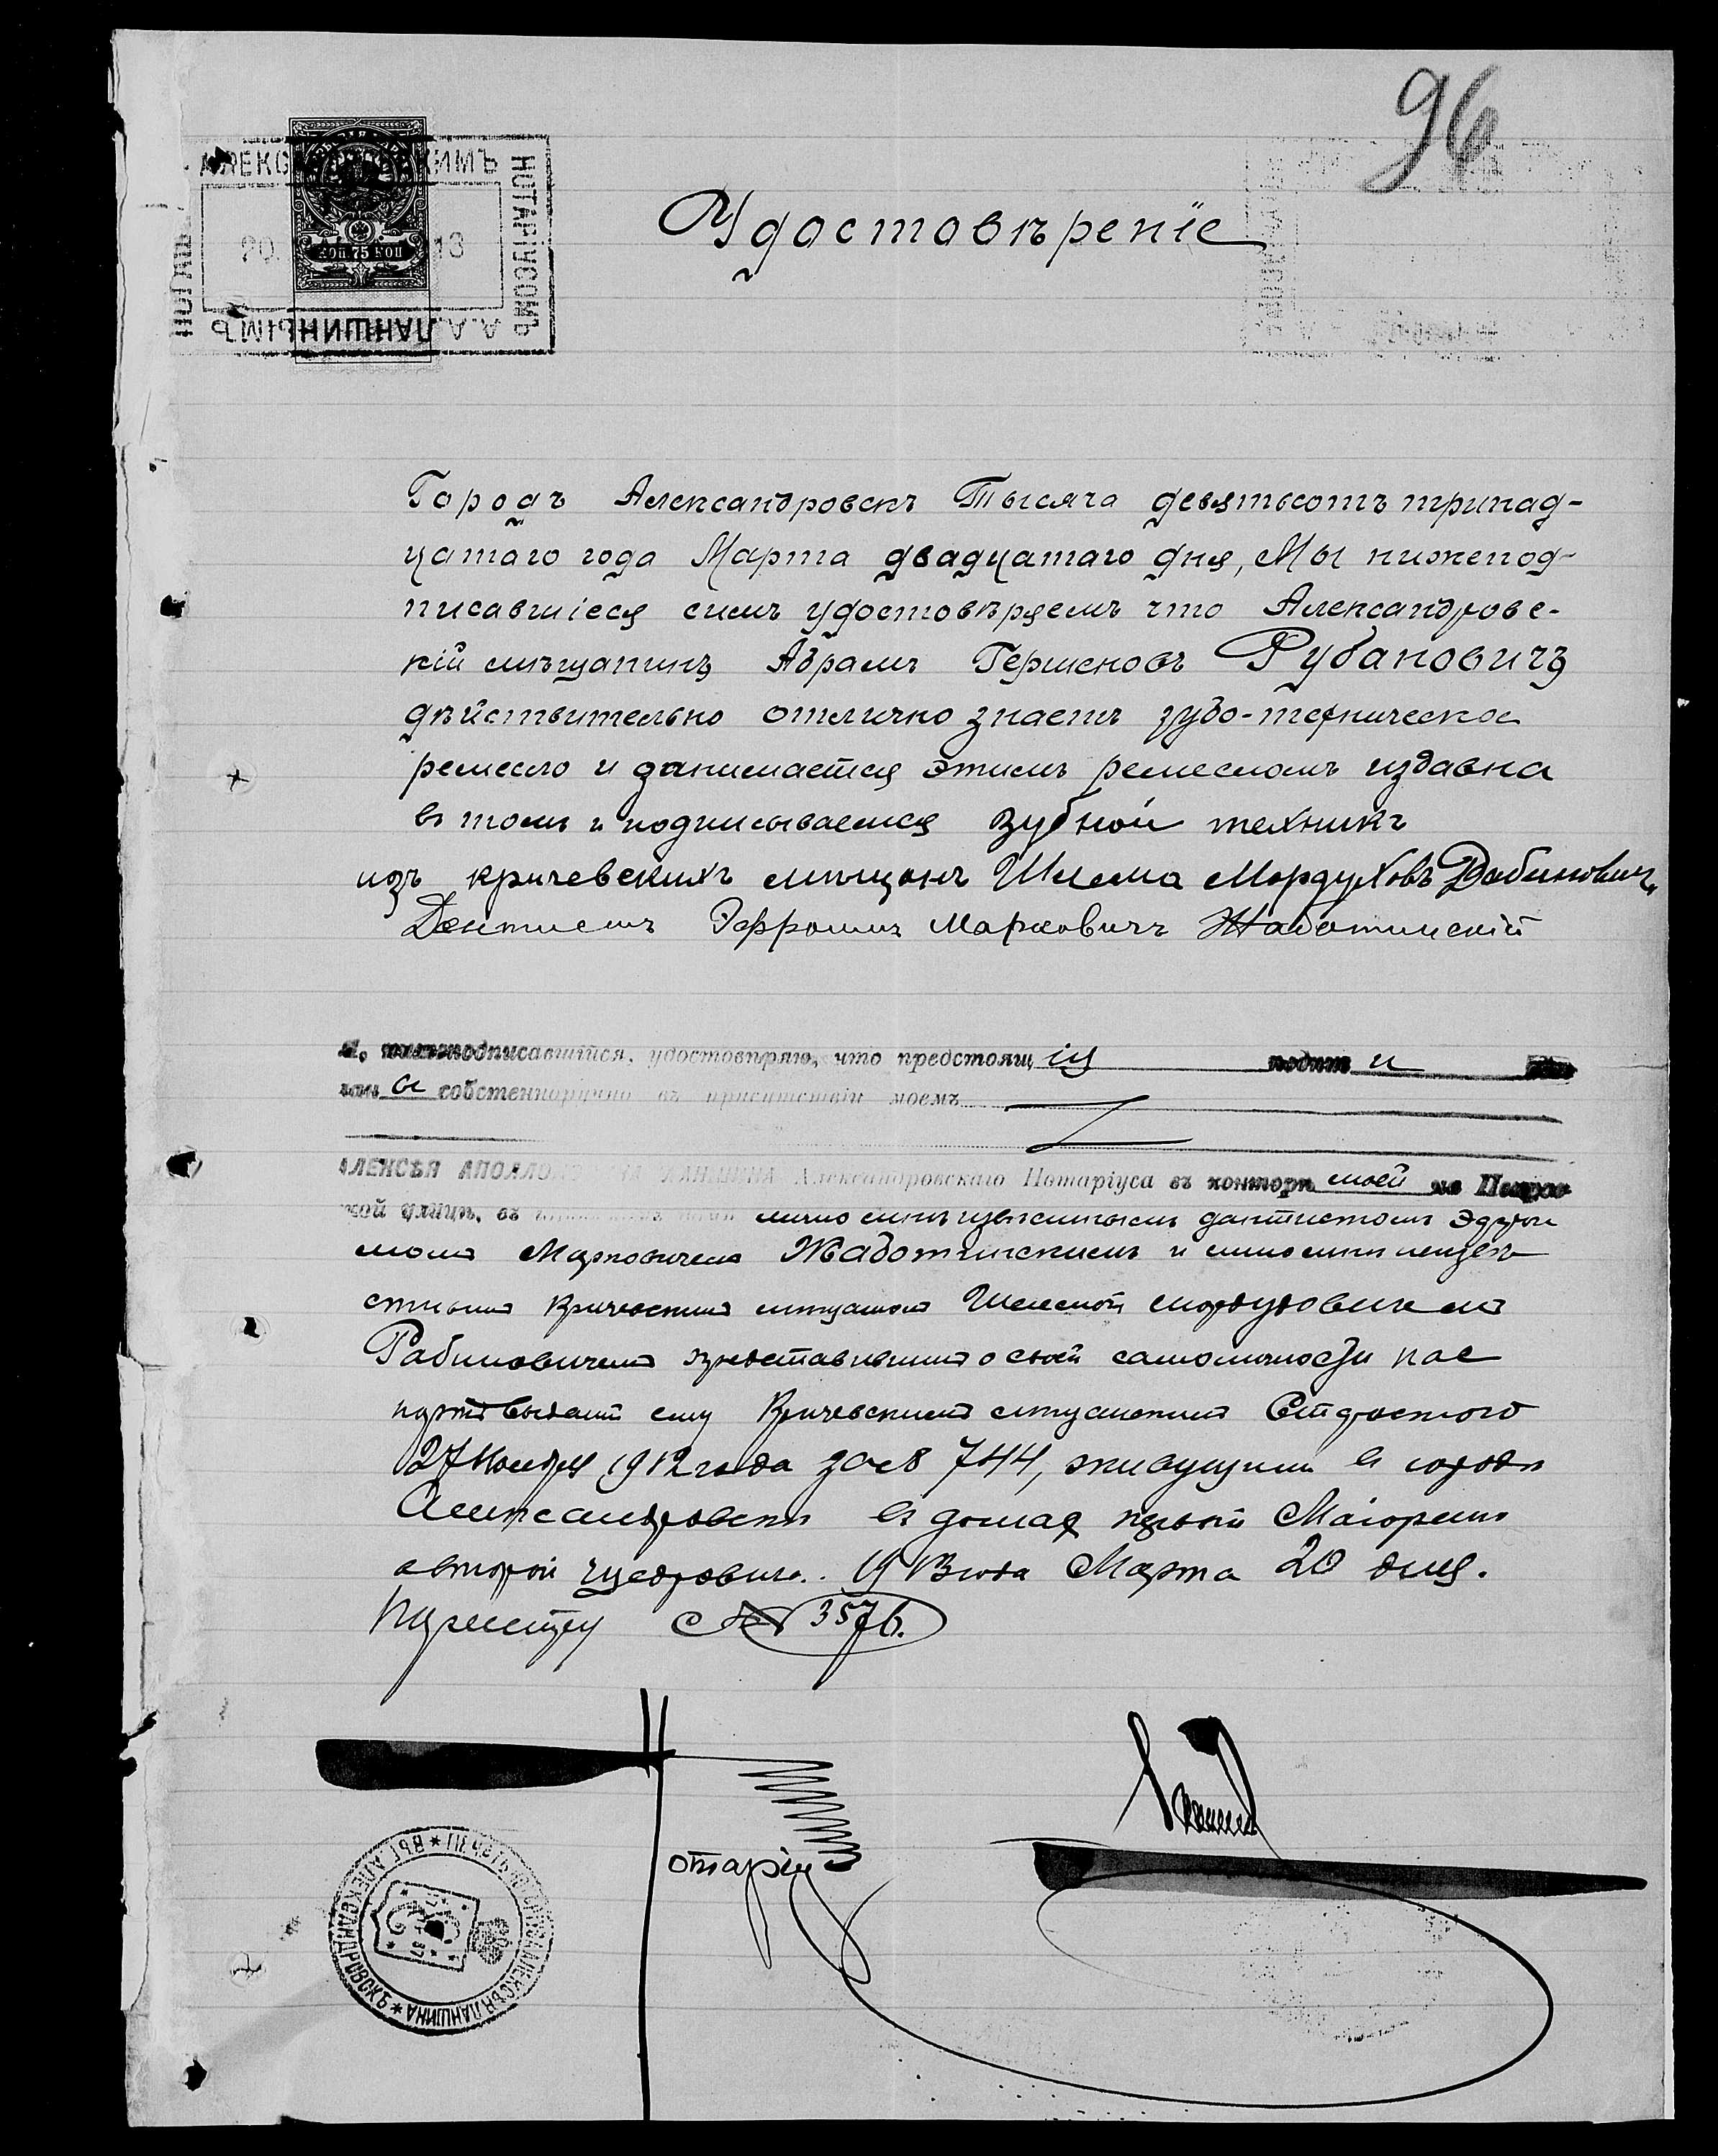 96
АЛЕКС КИМЪ
НОТАРІУСОМЪ
А. А. ЛАНШИНЫМЪ
20. 13
75 КОП
Удостовѣреніе
Городъ Александровскъ Тысяча девятьсотъ тринад-
цатаго года Марта двадцатаго дня, Мы нижепод-
писавшіеся симъ удостовѣряемъ что Александровс-
кій мѣщанинъ Абрамъ Гершеновъ Рубановичъ
дѣйствительно отлично знаетъ зубо-техническое
ремесло и занимается этимъ ремесломъ издавна
въ томъ и подписываемся Зубной техникъ
изъ кричевскихъ мѣщанъ Шлема Мордуховъ Рабиновичъ,
Дентистъ Эфроимъ Марковичъ Жаботинскій
Я, нижеподписавшійся, удостовѣряю, что предстоящ ія подпи и
сан ы собственноручно въ присутствіи моемъ
АЛЕКСѢЯ АПОЛЛОНОВИЧА ЛАНШИНА Александровскаго Нотаріуса въ конторѣ моей на
кой улицѣ, въ лично мнѣ извѣстнымъ дантистомъ Эфрои
момъ Марковичемъ Жаботинскимъ и мнѣ неизвѣ
стнымъ Кричевскимъ мѣщаниномъ Шлемой Мордуховичемъ
Рабиновичемъ представившимъ о своей самоличности пас
портъ выданный ему Кричевскимъ мѣщанскимъ Старостою
27 Ноября 1912 года за № 744, живущими въ городѣ
Александровскѣ въ домахъ первый
а второй 1913 года Марта 20 дня.
По реестру № 3576.
Нотаріусъ
Ланшинъ
АЛЕКСѢЯ ЛАНШИНА * ВЪ Г. АЛЕКСАНДРОВСКѢ *